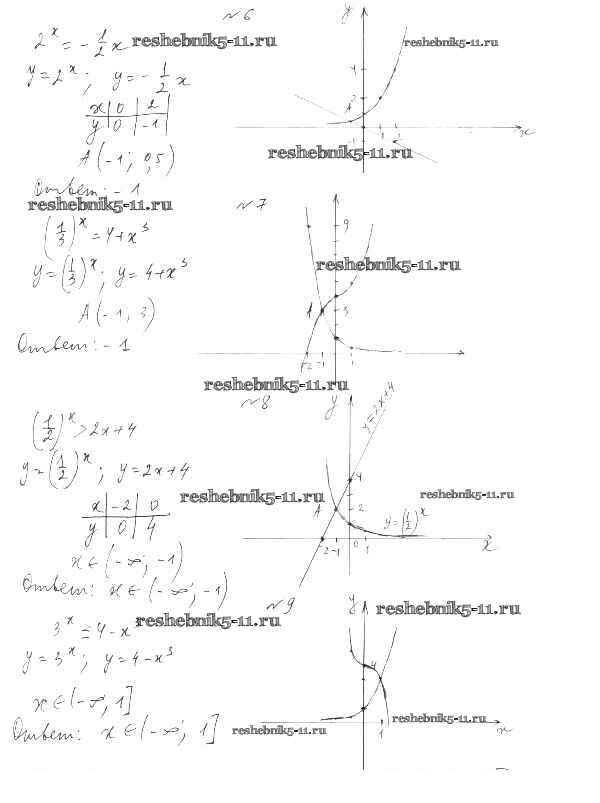 №6
2^x = -1/2 x
reshebnik5-11.ru
reshebnik5-11.ru
y = 2^x; y = -1/2 x
x | 0 | 2
y | 0 | -1
A(-1; 0,5)
reshebnik5-11.ru
Ответ: -1
reshebnik5-11.ru
y
4
2
A
-1
1 2
x
№7
(1/3)^x = 4 + x^3
y = (1/3)^x; y = 4 + x^3
A(-1; 3)
Ответ: -1
reshebnik5-11.ru
9
A
3
-2 -1
1
reshebnik5-11.ru
№8
(1/2)^x > 2x + 4
y = (1/2)^x; y = 2x + 4
x | -2 | 0
y | 0 | 4
x ∈ (-∞; -1)
Ответ: x ∈ (-∞; -1)
reshebnik5-11.ru
reshebnik5-11.ru
y
y = 2x + 4
4
A
2
y = (1/2)^x
-2 -1 0 1
x
№9
reshebnik5-11.ru
reshebnik5-11.ru
3^x ≤ 4 - x^3
y = 3^x; y = 4 - x^3
x ∈ (-∞; 1]
Ответ: x ∈ (-∞; 1]
reshebnik5-11.ru
reshebnik5-11.ru
y
4
1
x